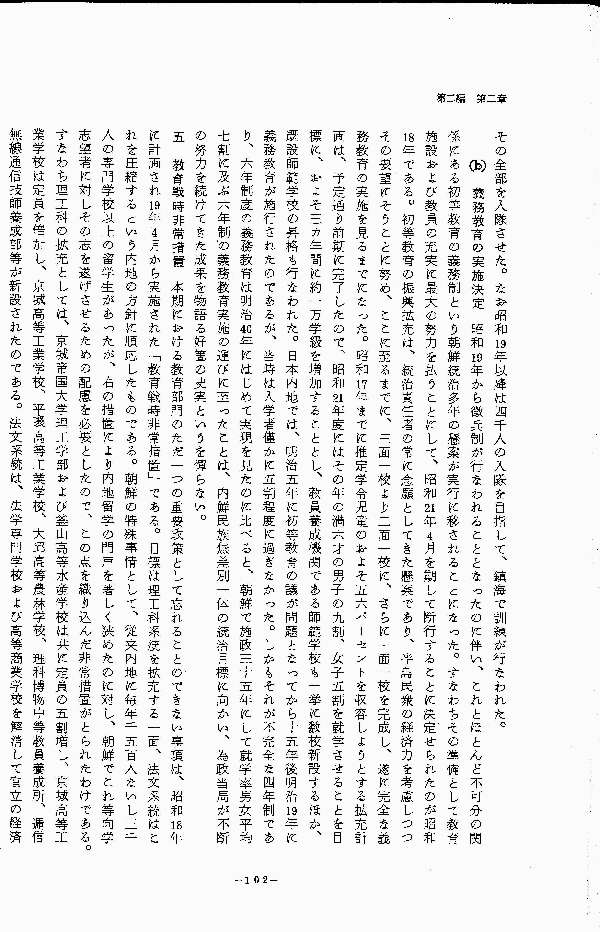 第二編　第二章
その全部を入隊させた。なお昭和19年以降は四千人の入隊を目指して、鎮海で訓練が行なわれた。
(b)　義務教育の実施決定　昭和19年から徴兵制が行なわれることとなったのに伴い、これとほとんど不可分の関
係にある初等教育の義務制という朝鮮統治多年の懸案が実行に移されることになった。すなわちその準備として教育
施設および教員の充実に最大の努力を払うことにして、昭和21年4月を期して断行することに決定せられたのが昭和
18年である。初等教育の振興拡充は、統治責任者の常に念願としてきた懸案であり、半島民衆の経済力を考慮しつつ
その要望にそうことに努め、ここに至るまでに、三面一校より二面一校に、さらに一面一校を完成し、遂に完全な義
務教育の実施を見るまでになった。昭和17年までに推定学令児童のおよそ五六パーセントを収容しようとする拡充計
画は、予定通り前期に完了したので、昭和21年度にはその年の満六才の男子の九割、女子五割を就学させることを目
標に、およそ三カ年間に約一万学級を増加することとし、教員養成機関である師範学校も一挙に数校新設するほか、
既設師範学校の昇格も行なわれた。日本内地では、明治五年に初等教育の議が問題となってから十五年後明治19年に
義務教育が施行されたのであるが、当時は入学者僅かに五割程度に過ぎなかった。しかもそれが不完全な四年制であ
り、六年制度の義務教育は明治40年にはじめて実現を見たのに比べると、朝鮮で施政三十五年にして就学率男女平均
七割に及ぶ六年制の義務教育実施の運びに至ったことは、内鮮民族無差別一体の統治目標に向かい、為政当局が不断
の努力を続けてきた成果を物語る好箇の史実というを憚らない。
五　教育戦時非常措置　本期における教育部門のただ一つの重要政策として忘れることのできない事項は、昭和18年
に計画され19年4月から実施された「教育戦時非常措置」である。目標は理工科系統を拡充する一面、法文系統はこ
れを圧縮するという内地の方針に順応したものである。朝鮮の特殊事情として、従来内地に毎年千五百人ないし三千
人の専門学校以上の留学生があったが、右の措置により内地留学の門戸を著しく狭めたのに対し、朝鮮でこれ等向学
志望者に対しその志を遂げさせるための配慮を必要としたので、この点を織り込んだ非常措置がとられたわけである。
すなわち理工科の拡充としては、京城帝国大学理工学部および釜山高等水産学校は共に定員の五割増し、京城高等工
業学校は定員を倍加し、京城高等工業学校、平壌高等工業学校、大邱高等農林学校、理科博物中等教員養成所、逓信
無線通信技師養成部等が新設されたのである。法文系統は、法学専門学校および高等商業学校を解消して官立の経済
—102—